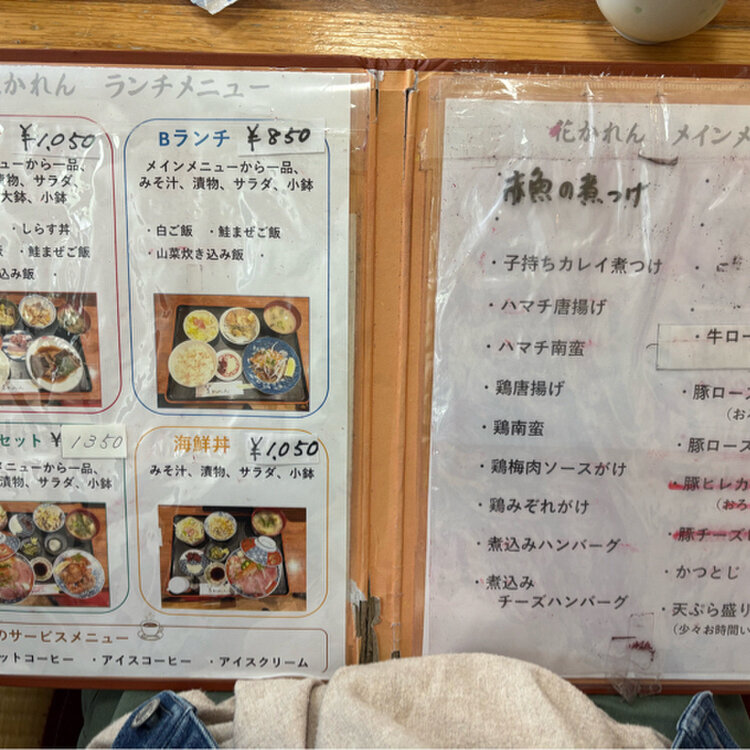 かれん ランチメニュー
¥1,050
ューから一品、
漬物、サラダ、
大鉢、小鉢
・しらす丼
・鮭まぜご飯
込み飯 ・
Bランチ ¥850
メインメニューから一品、
みそ汁、漬物、サラダ、小鉢
・白ご飯 ・鮭まぜご飯
・山菜炊き込み飯 ・
セット ¥1350
メニューから一品、
漬物、サラダ、小鉢
海鮮丼 ¥1,050
みそ汁、漬物、サラダ、小鉢
のサービスメニュー
ットコーヒー ・アイスコーヒー ・アイスクリーム
花かれん メインメ
赤魚の煮つけ
・子持ちカレイ煮つけ
・ハマチ唐揚げ
・ハマチ南蛮
・鶏唐揚げ
・鶏南蛮
・鶏梅肉ソースがけ
・鶏みぞれがけ
・煮込みハンバーグ
・煮込み
チーズハンバーグ
・牛ロー
・豚ロース
(お
・豚ロース
・豚ヒレカ
(おろ
・豚チーズ
・かつとじ
・天ぷら盛り
(少々お時間い